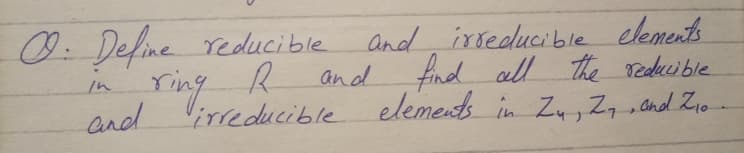 Q: Define reducible and irreducible elements
in ring R and find all the reducible
and irreducible elements in Z₄, Z₇, and Z₁₀.